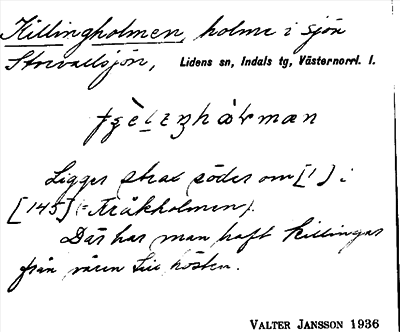 Killingholmen, holme i sjön
Storvallsjön, Lidens sn, Indals tg, Västernorrl. l.
Ligger strax söder om [1] i
[145] = Tråkholmen).
Där har man haft killingar
från våren till hösten.
VALTER JANSSON 1936